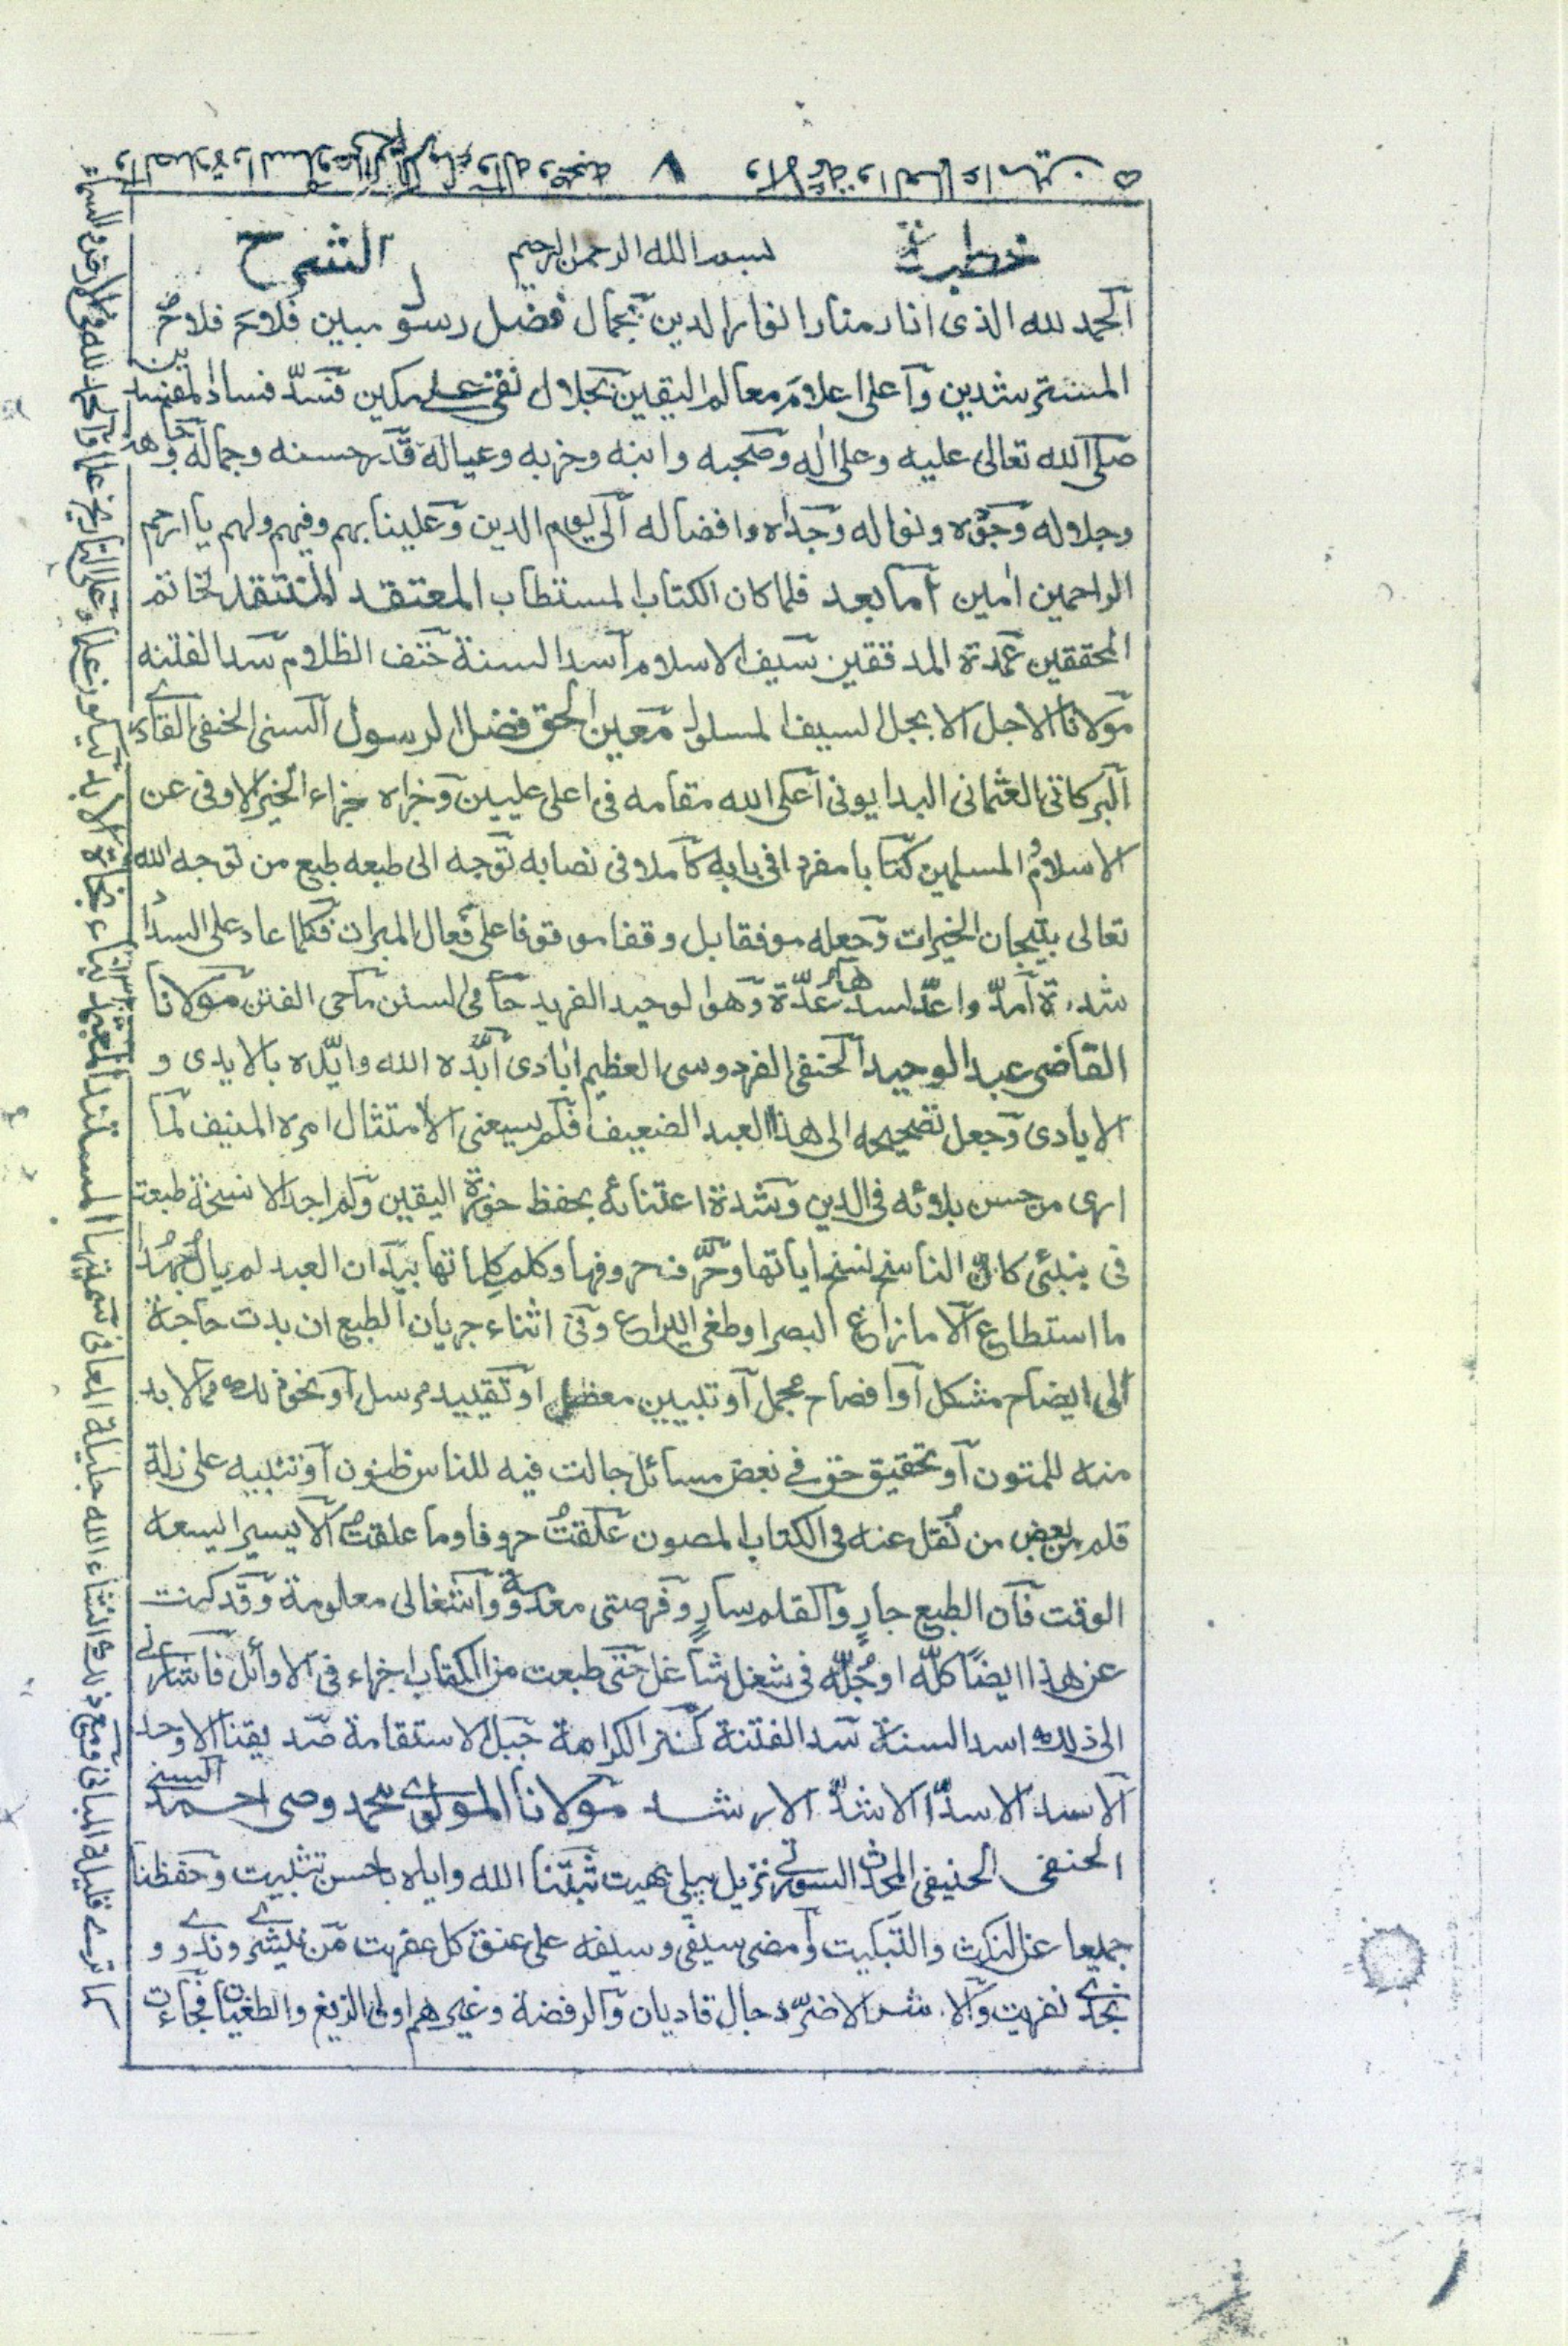 خطبة بسم الله الرحمن الرحيم الشرح
الحمد لله الذى انار منار انوار الدين بجمال فضل رسو مبين فلاح فلاح
المسترشدين واعلى اعلام معالم اليقين بجلال نقى على مكين فسد فساد المفسدين
صلى الله تعالى عليه وعلى اله وصحبه وابنه وحزبه وعياله قدر حسنه وجماله وجاهه
وجلاله وجوده ونواله وجداه وافضاله الى يوم الدين وعلينا بهم وفيهم ولهم يا ارحم
الراحمين امين اما بعد فلما كان الكتاب المستطاب المعتقد المنتقد لخاتم
المحققين عمدة المدققين سيف الاسلام اسد السنة حتف الظلام سد الفتنه
مولانا الاجل الابجل السيف المسلول معين الحق فضل الرسول السنى الحنفى القادرى
البركاتى العثمانى البدايونى اعلى الله مقامه فى اعلى عليين وجزاه جزاء الخير الاوفى عن
الاسلام والمسلمين كتابا مفردا فى بابه كاملا فى نصابه توجه الى طبعه طبع من توجه الله
تعالى بتيجان الخيرات وجعله موفقا بل وقفا موقوفا على فعال المبرات فكلما عاد على السداد
شدة امد واعد لسدها عدة وهو الوحيد الفريد حامى السنن ماحى الفتن مولانا
القاضى عبد الوحيد الحنفى الفردوسى العظيم ابادى ابده الله وايده بالايدى و
الايادى وجعل تصحيحه الى هذا العبد الضعيف فلم يسعنى الا امتثال امره المنيف لما
ارى من حسن بلائه فى الدين وشدة اعتنائه بحفظ حوزة اليقين ولم اجد الا نسخة طبعت
فى بنبئى كان الناسخ نسخ اياتها وحرف حروفها وكلم كلماتها بيد ان العبد لم يال جهدا
ما استطاع الا ما زاغ البصر او طغى اليراع وفى اثناء جريان الطبع ان بدت حاجة
الى ايضاح مشكل او افصاح مجمل او تبيين معضل او تقييد مرسل او نحو ذلك مما لا بد
منه للمتون او تحقيق حق فى بعض مسائل جالت فيه للناس ظنون او تنبيه على زلة
قلم من بعض من نقل عنه فى الكتاب المصون علقت حروفا وما علقت الا يسيرا يسعه
الوقت فان الطبع جار والقلم سار وفرصتى معدومة واشتغالى معلومة وقد كنت
عن هذا ايضا كله او جله فى شغل شاغل حتى طبعت من الكتاب اجزاء فى الاوائل فاشار لى
الى ذلك اسد السنة سد الفتنة كنز الكرامة جبل الاستقامة صديقنا الاوحد
الاسد الاسد الاشد الارشد مولانا المولوى محمد وصى احمد السنى
الحنفى الحنيفى المحدث السورتى نزيل پيلى بهيت ثبتنا الله واياه باحسن تثبيت وحفظنا
جميعا عن النكث والتبكيت وامضى سيفى وسيفه على عنق كل عفريت من نيشرى وندوى و
نجدى نفريت والا شر الاضر دجال قاديان والرفضة وغيرهم اولى الزيغ والطغيان فجاءت
كما ترى قليلة المبانى ومع ذلك ان شاء الله جليلة المعانى سميتها المستند المعتمد بناء نجاة الابد